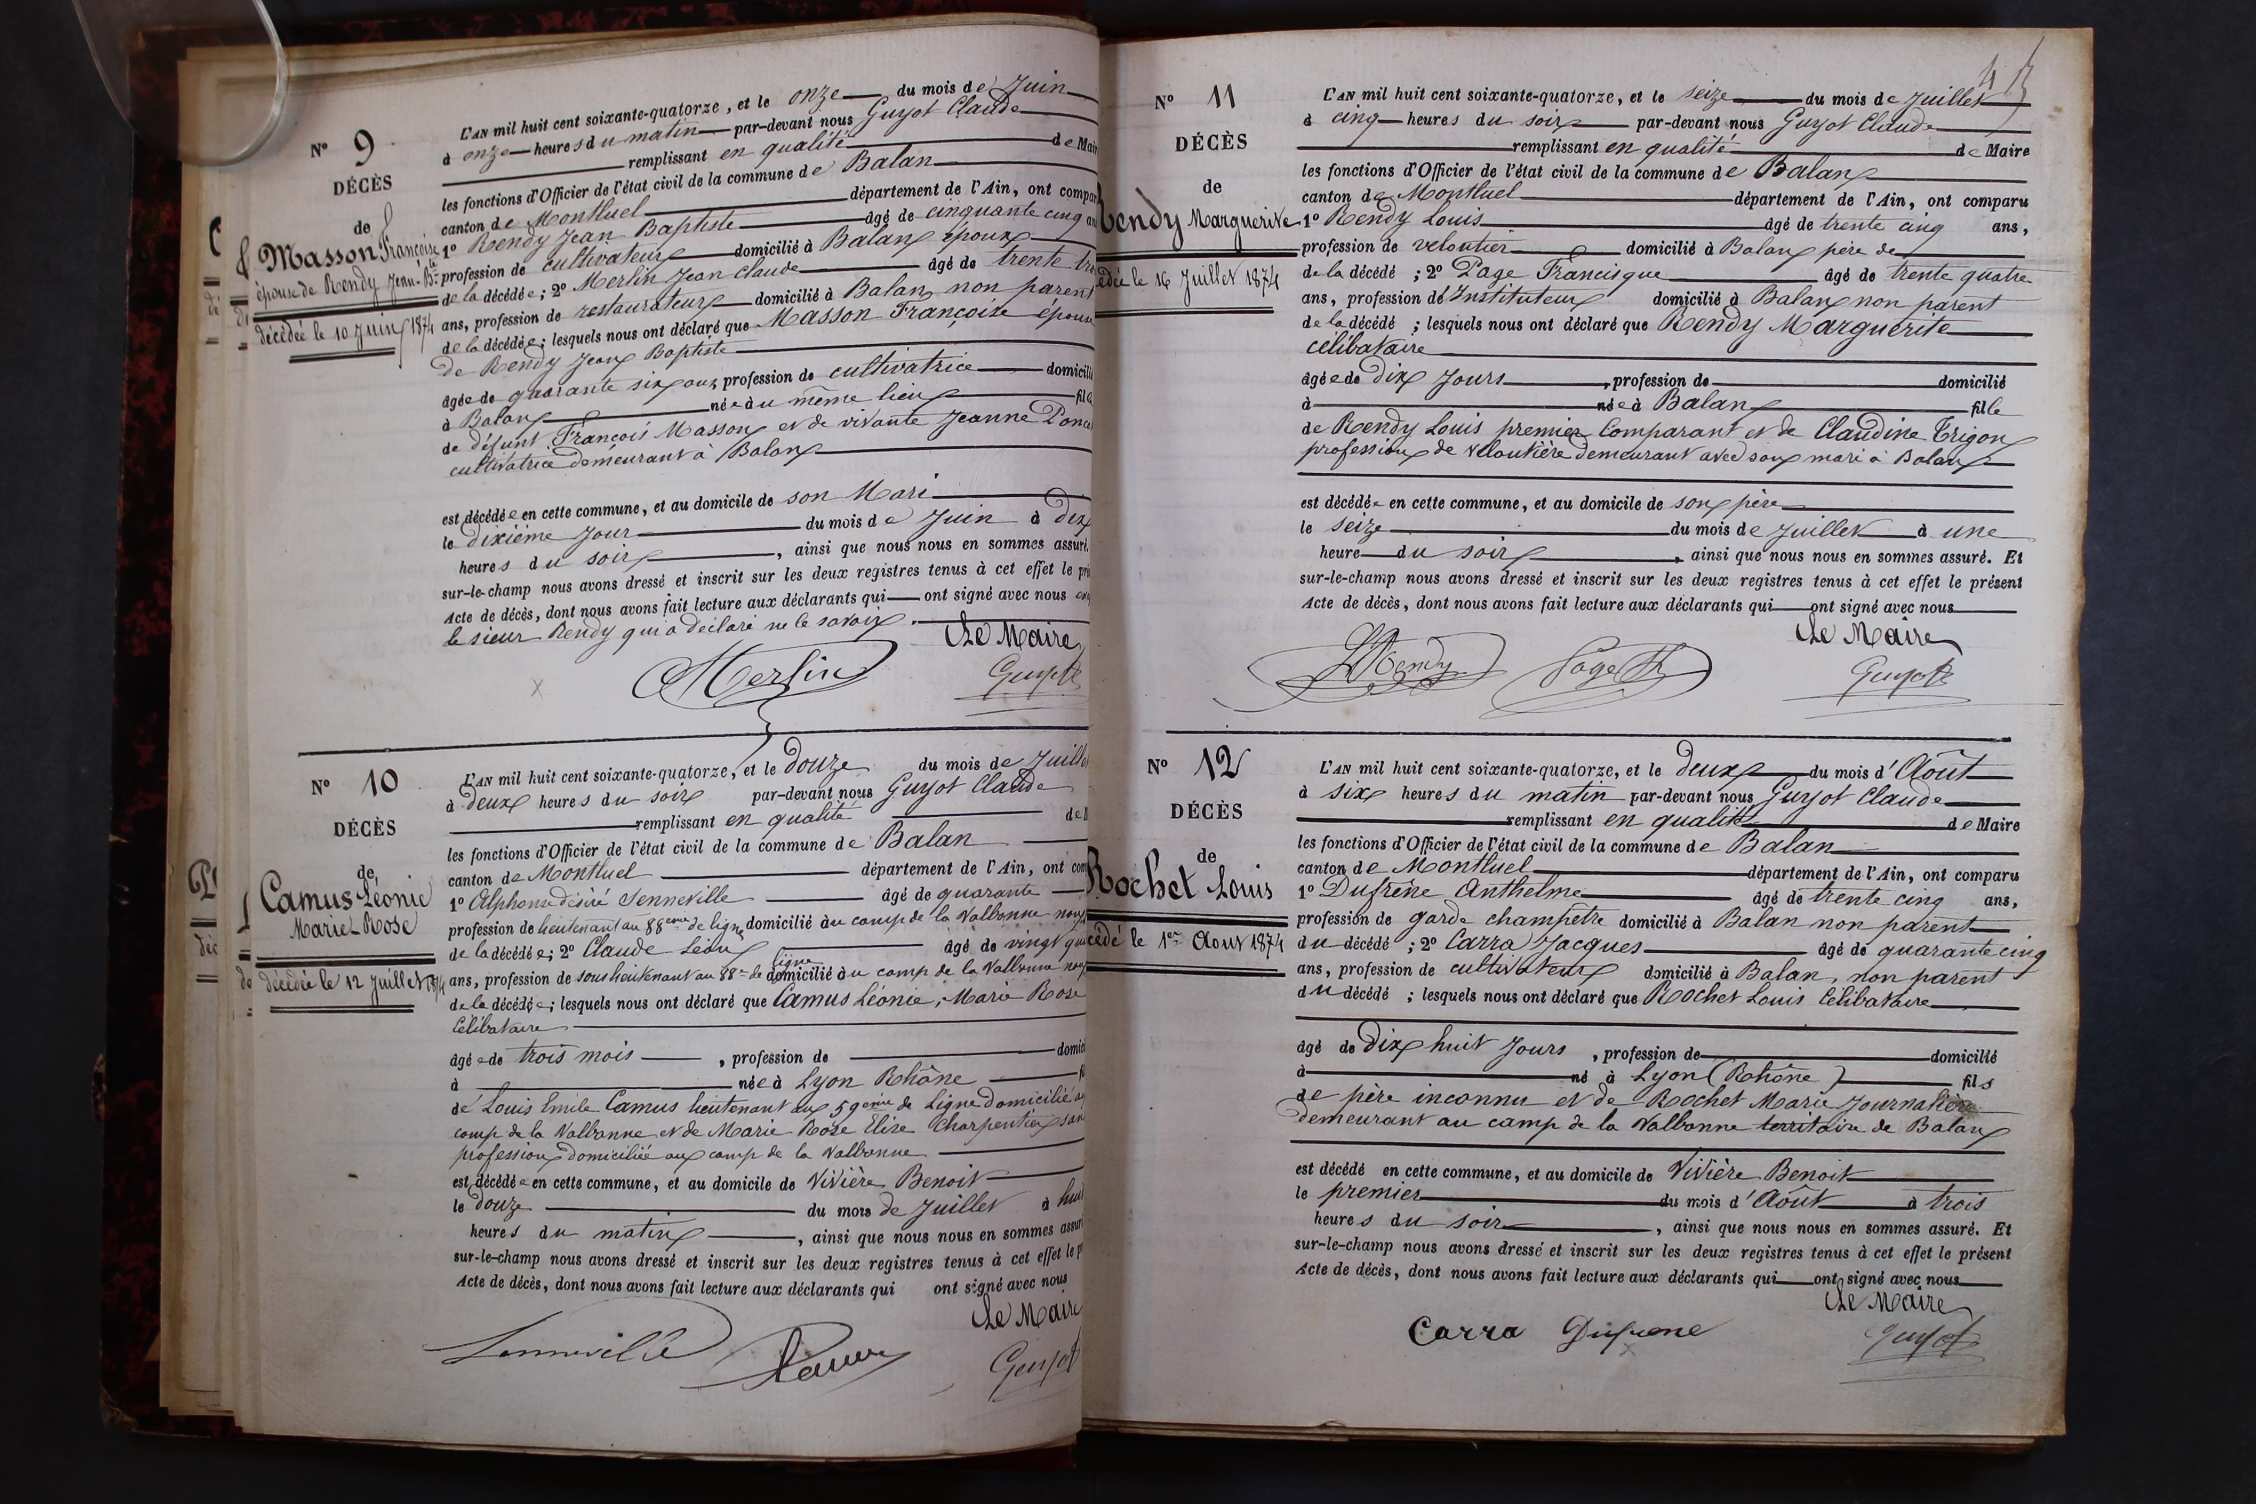 N° 9
DÉCÈS
de
Masson Françoise
épouse de Rendy Jean-Bte
décédée le 10 Juin 1874
L'AN mil huit cent soixante-quatorze, et le onze du mois de Juin
à onze heures du matin par-devant nous Guyot Claude
remplissant en qualité de Mair
les fonctions d'Officier de l'état civil de la commune de Balan
canton de Montluel département de l'Ain, ont compar
1° Rendy Jean Baptiste âgé de cinquante cinq an
profession de cultivateur domicilié à Balan époux
de la décédée; 2° Merlin Jean Claude âgé de trente tro
ans, profession de restaurateur domicilié à Balan, non parent
de la décédée; lesquels nous ont déclaré que Masson Françoise épouse
de Rendy Jean Baptiste
âgée de quarante six ans, profession de cultivatrice domicili
à Balan née au même lieu fille
de défunt François Masson et de vivante Jeanne Ponce
cultivatrice demeurant à Balan
est décédée en cette commune, et au domicile de son Mari
le dixième jour du mois de Juin à dix
heures du soir, ainsi que nous nous en sommes assuré.
sur-le-champ nous avons dressé et inscrit sur les deux registres tenus à cet effet le pré
Acte de décès, dont nous avons fait lecture aux déclarants qui ont signé avec nous
le sieur Rendy qui a déclaré ne le savoir.
Le Maire
Merlin Guyot
N° 10
DÉCÈS
de
Camus Léonie
Marie Rose
décédée le 12 Juillet 1874
L'AN mil huit cent soixante-quatorze, et le douze du mois de Juille
à deux heures du soir par-devant nous Guyot Claude
remplissant en qualité de M
les fonctions d'Officier de l'état civil de la commune de Balan
canton de Montluel département de l'Ain, ont com
1° Alphonse désiré Senneville âgé de quarante
profession de lieutenant au 88eme de ligne domicilié au camp de la Valbonne non
de la décédée; 2° Claude Léon âgé de vingt
ligne
ans, profession de sous lieutenant au 88e de domicilié au camp de la Valbonne non
de la décédée; lesquels nous ont déclaré que Camus Léonie, Marie Rose
Célibataire
âgée de trois mois, profession de domici
à née à Lyon Rhône fi
de Louis Emile Camus lieutenant au 59eme de Ligne domicilié au
camp de la Valbonne et de Marie Rose Elise Charpentier san
profession domiciliée au camp de la Valbonne
est décédée en cette commune, et au domicile de Vivière Benoit
le douze du mois de Juillet à hui
heures du matin, ainsi que nous nous en sommes assuré
sur-le-champ nous avons dressé et inscrit sur les deux registres tenus à cet effet le p
Acte de décès, dont nous avons fait lecture aux déclarants qui ont signé avec nous
Le Maire
Senneville Guyot
N° 11
DÉCÈS
de
Rendy Marguerite
édée le 16 Juillet 1874
L'AN mil huit cent soixante-quatorze, et le seize du mois de Juillet
à cinq heures du soir par-devant nous Guyot Claude
remplissant en qualité de Maire
les fonctions d'Officier de l'état civil de la commune de Balan
canton de Montluel département de l'Ain, ont comparu
1° Rendy Louis âgé de trente cinq ans,
profession de veloutier domicilié à Balan père de
de la décédé; 2° Page Francisque âgé de trente quatre
ans, profession d'Instituteur domicilié à Balan non parent
de la décédé; lesquels nous ont déclaré que Rendy Marguerite
célibataire
âgée de dix jours, profession de domicilié
à née à Balan fille
de Rendy Louis premier Comparant et de Claudine Trigon
profession de veloutière demeurant avec son mari à Balan
est décédée en cette commune, et au domicile de son père
le seize du mois de Juillet à une
heure du soir, ainsi que nous nous en sommes assuré. Et
sur-le-champ nous avons dressé et inscrit sur les deux registres tenus à cet effet le présent
Acte de décès, dont nous avons fait lecture aux déclarants qui ont signé avec nous
Le Maire
LRendy Page Guyot
N° 12
DÉCÈS
de
Rochet Louis
cédé le 1er Aout 1874
L'AN mil huit cent soixante-quatorze, et le deux du mois d'Août
à six heures du matin par-devant nous Guyot Claude
remplissant en qualité de Maire
les fonctions d'Officier de l'état civil de la commune de Balan
canton de Montluel département de l'Ain, ont comparu
1° Dufrêne Anthelme âgé de trente cinq ans,
profession de garde champêtre domicilié à Balan non parent
du décédé; 2° Carra Jacques âgé de quarante cinq
ans, profession de cultivateur domicilié à Balan, non parent
du décédé; lesquels nous ont déclaré que Rochet Louis Célibataire
âgé de Dix huit Jours, profession de domicilié
à né à Lyon (Rhône) fils
de père inconnu et de Rochet Marie Journalière
demeurant au camp de la Valbonne territoire de Balan
est décédé en cette commune, et au domicile de Vivière Benoit
le premier du mois d'Août à trois
heures du soir, ainsi que nous nous en sommes assuré. Et
sur-le-champ nous avons dressé et inscrit sur les deux registres tenus à cet effet le présent
Acte de décès, dont nous avons fait lecture aux déclarants qui ont signé avec nous
Le Maire
Carra Dufrene Guyot